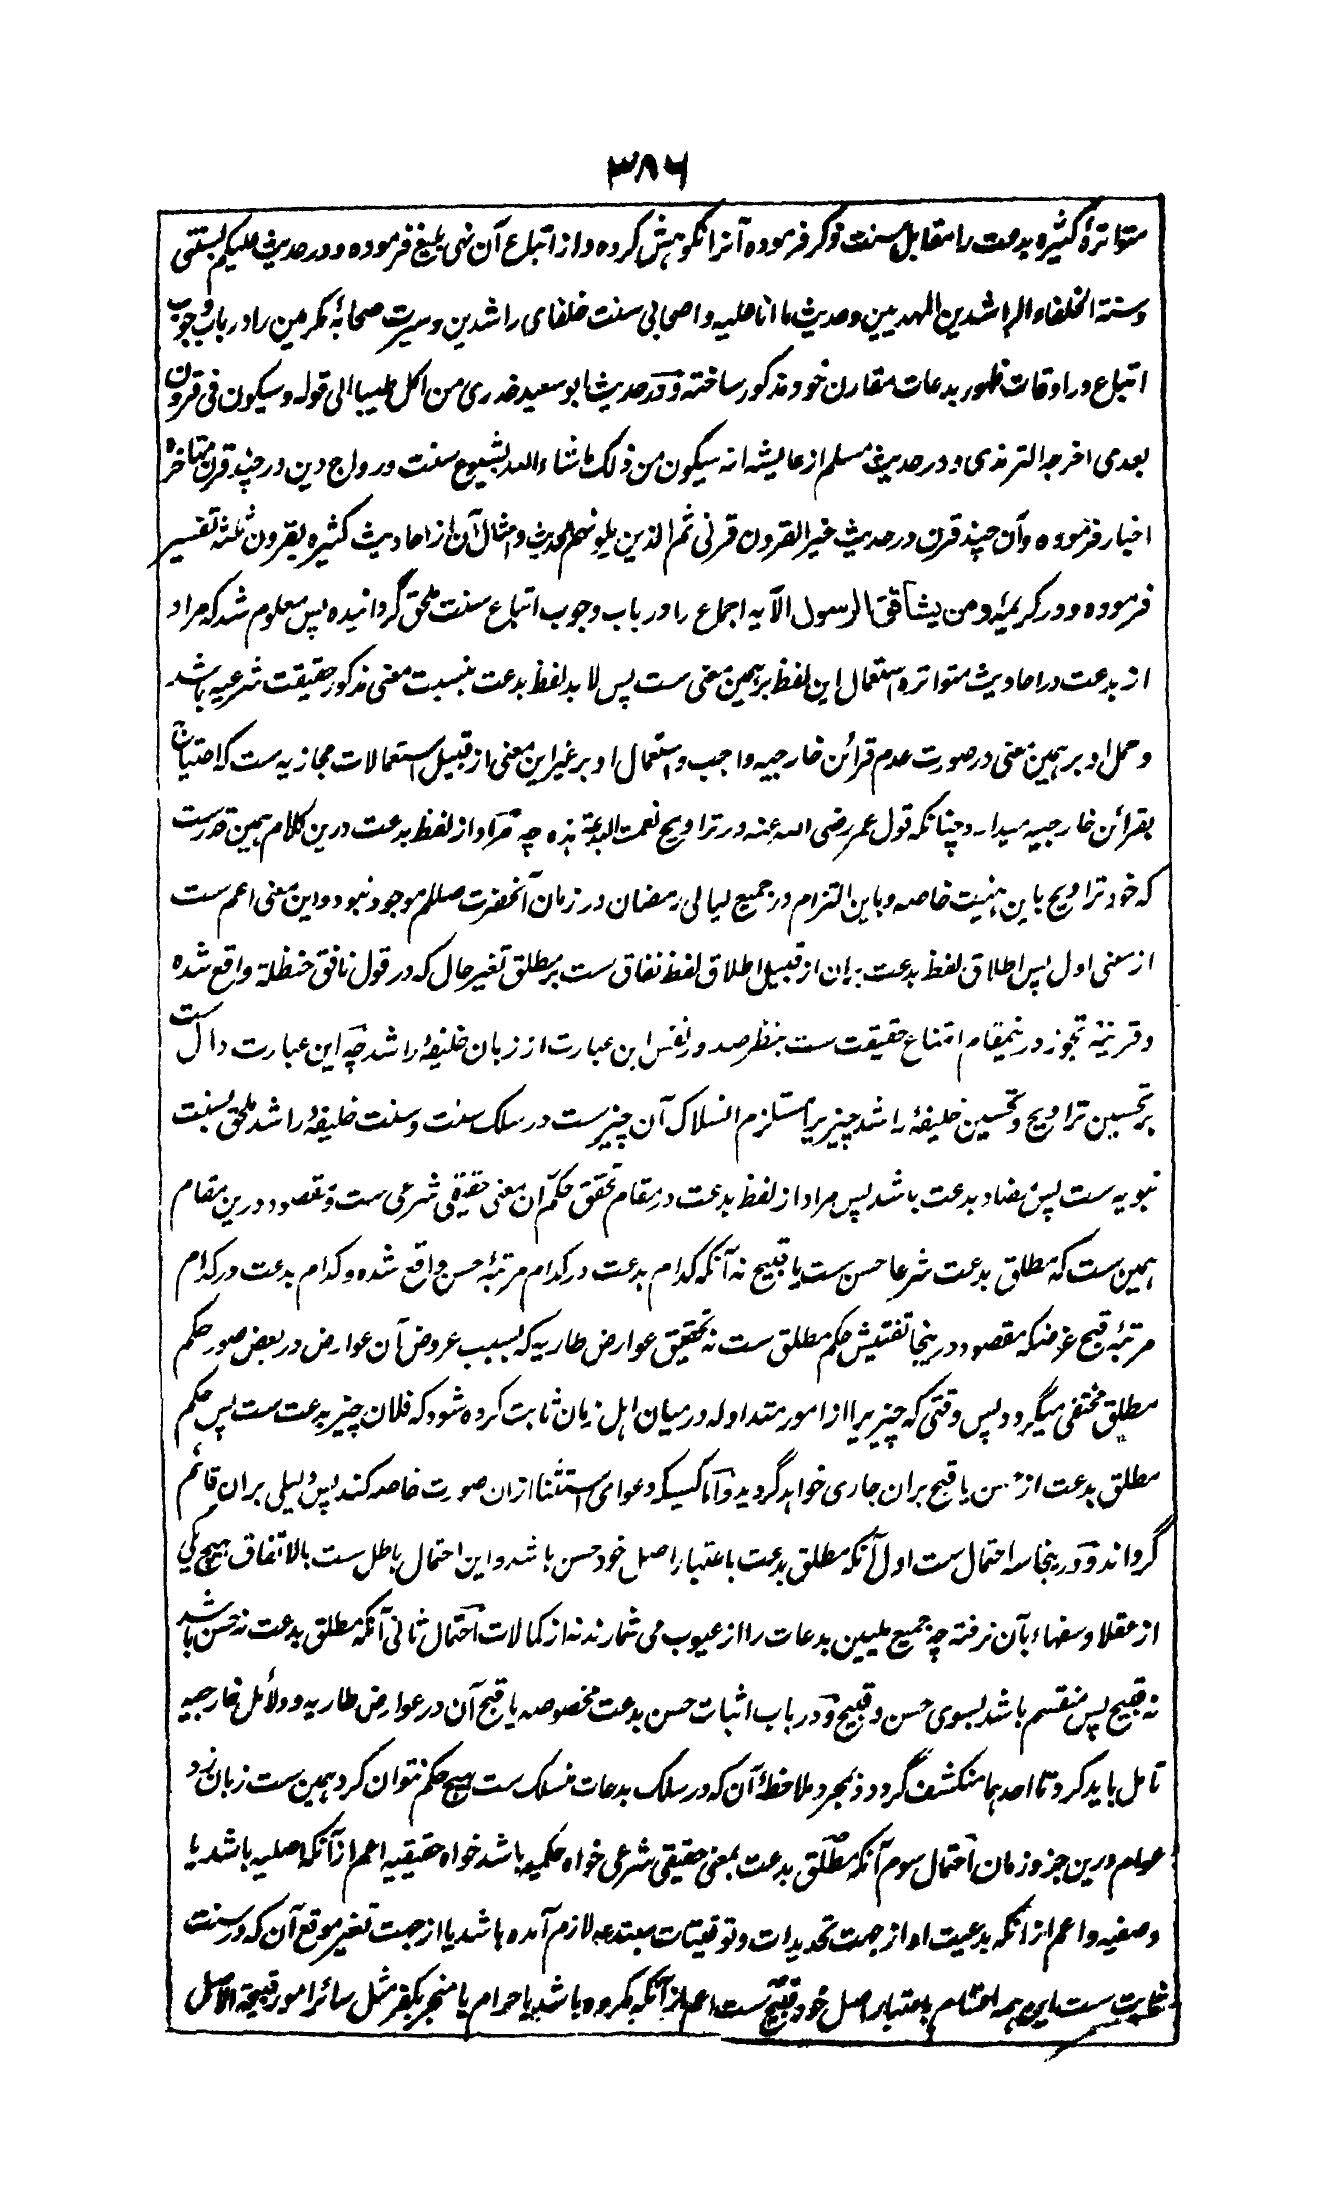 ۳۸۶
متواترۂ کثیره بدعت را مقابل سنت ذکر فرموده آنرا نکوہش کرده و از اتباع آن نہی بلیغ فرموده و در حدیث علیکم بسنتی
وسنة الخلفاء الراشدین المہدیین و حدیث ما انا علیه و اصحابی سنت خلفای راشدین و سیرت صحابۂ مکرمین را در باب وجوب
اتباع در اوقات ظہور بدعات مقارن خود مذکور ساخته و در حدیث ابو سعید خدری من اکل طیبا الی قوله و سیکون فی قرون
بعدی اخرجه الترمذی و در حدیث مسلم از عایشه انه سیکون من ذلک ماشاء الله بشیوع سنت و رواج دین در چند قرن متاخره
اخبار فرموده و آن چند قرن در حدیث خیر القرون قرنی ثم الذین یلونہم الحدیث و امثال آن از احادیث کثیره بقرون ثلثه تفسیر
فرموده و در کریمۂ ومن یشاقق الرسول الآیه اجماع را در باب وجوب اتباع سنت ملحق گردانیده پس معلوم شد که مراد
از بدعت در احادیث متواتره استعمال این لفظ بر ہمین معنی ست پس لا بد لفظ بدعت بنسبت معنی مذکور حقیقت شرعیه باشد
و حمل او بر ہمین معنی در صورت عدم قرائن خارجیه واجب و استعمال او بر غیر این معنی از قبیل استعمالات مجازیه ست که احتیاج
بقرائن خارجیه میدارد چنانکه قول عمر رضی الله عنه در تراویح نعمت البدعة ہذه چه مراد از لفظ بدعت درین کلام ہمین قدرست
که خود تراویح باین ہئیت خاصه و باین التزام در جمیع لیالی رمضان در زمان آنحضرت صللم موجود نبود و این معنی اعم ست
از معنی اول پس اطلاق لفظ بدعت بران از قبیل اطلاق لفظ نفاق ست بر مطلق تغیر حال که در قول نافق حنظلة واقع شده
و قرینۂ تجوز درینمقام امتناع حقیقت ست بنظر صدور نفس این عبارت از زبان خلیفۂ راشد چه این عبارت دال ست
بر تحسین تراویح و تحسین خلیفۂ راشد چیزیرا مستلزم انسلاک آن چیزست در سلک سنت و سنت خلیفۂ راشد ملحق بسنت
نبویه ست پس مضاد بدعت باشد پس مراد از لفظ بدعت در مقام تحقق حکم آن معنی حقیقی شرعی ست و مقصود درین مقام
ہمین ست که مطلق بدعت شرعا حسن ست یا قبیح نه آنکه کدام بدعت در کدام مرتبۂ حسن واقع شده و کدام بدعت در کدام
مرتبۂ قبح غرضکه مقصود درینجا تفتیش حکم مطلق ست نه تحقیق عوارض طاریه که بسبب عروض آن عوارض در بعض صور حکم
مطلق مختفی میگردد پس وقتی که چیزیرا از امور متداوله درمیان اہل زمان ثابت کرده شود که فلان چیز بدعت ست پس حکم
مطلق بدعت از حسن یا قبح بران جاری خواہد گردید و اما کسیکه دعوای استثنا ازان صورت خاصه کند پس دلیلی بران قائم
گرداند و درینجا سه احتمال ست اول آنکه مطلق بدعت باعتبار اصل خود حسن باشد و این احتمال باطل ست بالاتفاق ہیچ یکی
از عقلا و سفہاء بآن نرفته چه جمیع ملیین بدعات را از عیوب می شمارند نه از کمالات احتمال ثانی آنکه مطلق بدعت نه حسن باشد
نه قبیح پس منقسم باشد بسوی حسن و قبیح و در باب اثبات حسن بدعت مخصوصه یا قبح آن در عوارض طاریه و دلائل خارجیه
تامل باید کرد تا احدہما منکشف گردد و بمجرد ملاحظۂ آن که در سلک بدعات منسلک ست ہیچ حکم نتوان کرد ہمین ست زبان زد
عوام درین جزو زمان احتمال سوم آنکه مطلق بدعت بمعنی حقیقی شرعی خواه حکمیه باشد خواه حقیقیه اعم از آنکه اصلیه باشد یا
وصفیه و اعم از انکه بدعیت او از جہت تحدیدات و توقیتات مبتدعه لازم آمده باشد یا از جہت تغیر موقع آن که در سنت
ثابت ست این ہمه اقسام باعتبار اصل خود قبیح ست اعم از آنکه مکروه باشد یا حرام یا منجر بکفر مثل سائر امور قبیحة الاصل